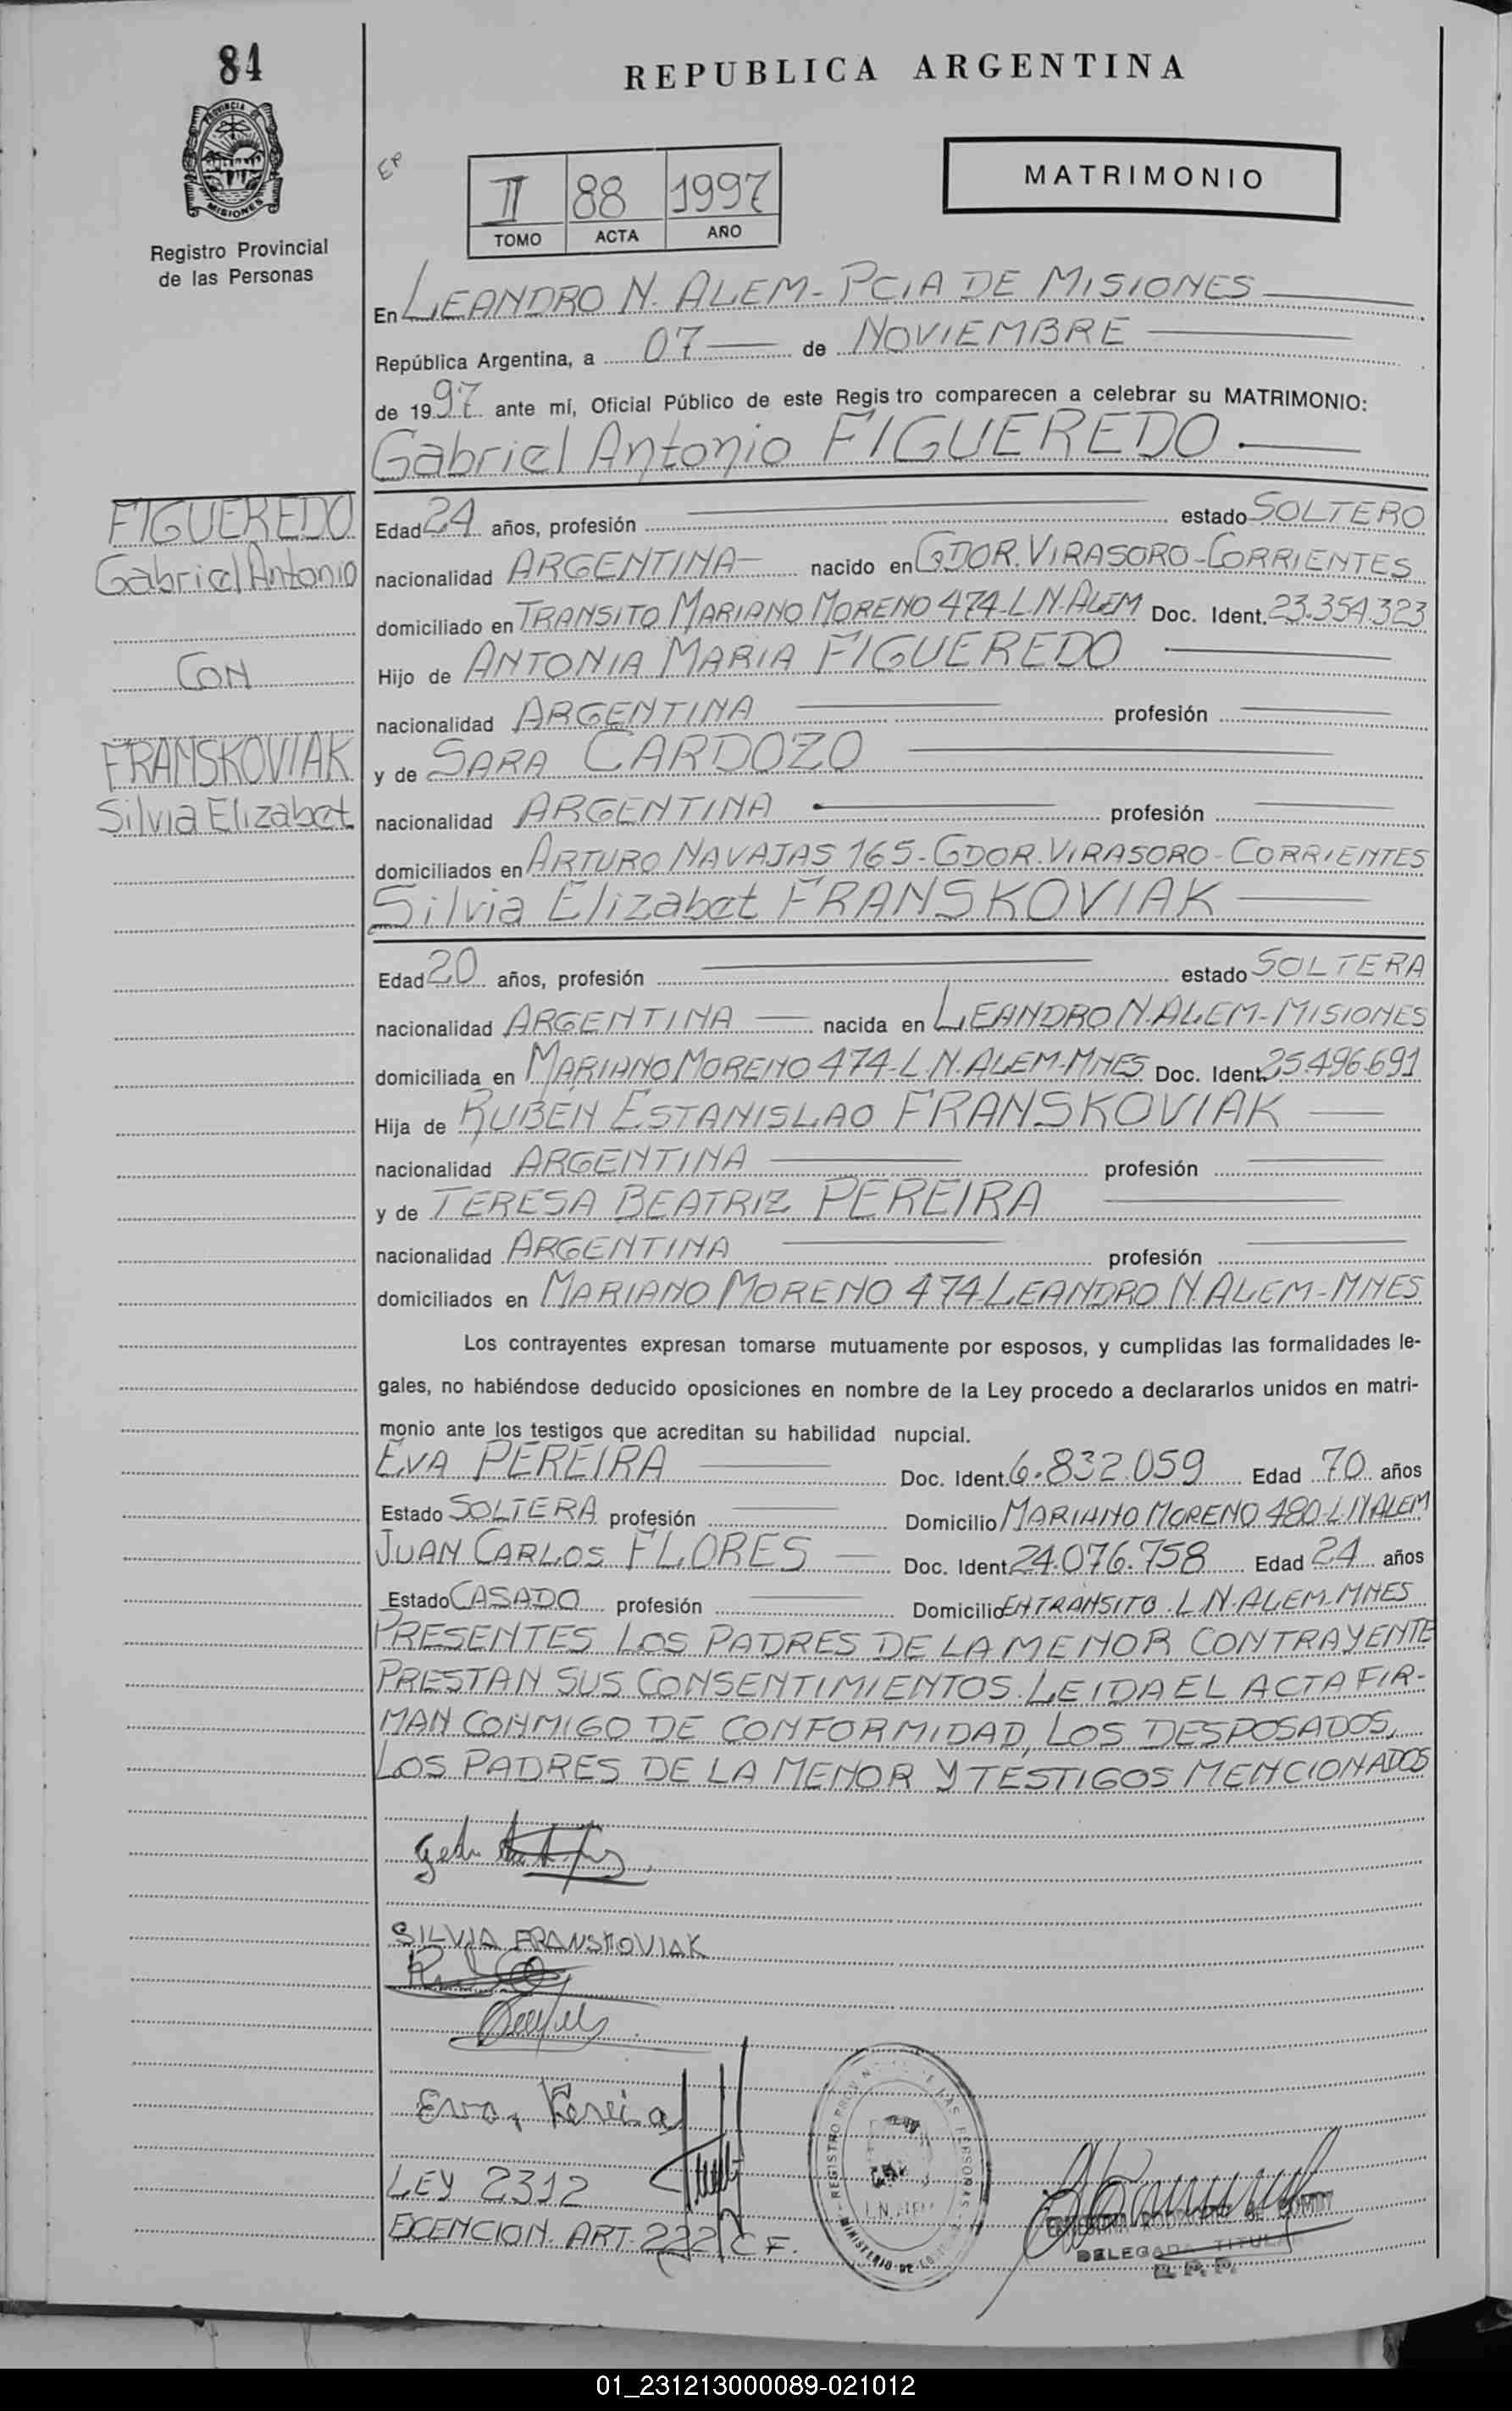 84
REPUBLICA ARGENTINA
PROVINCIA DE
MISIONES
Registro Provincial
de las Personas
EP
MATRIMONIO
II 88 1997
TOMO ACTA AÑO
En LEANDRO N. ALEM - PCIA DE MISIONES
República Argentina, a 07 de NOVIEMBRE
de 1997 ante mí, Oficial Público de este Regis tro comparecen a celebrar su MATRIMONIO:
Gabriel Antonio FIGUEREDO.
FIGUEREDO
Gabriel Antonio
CON
FRANSKOVIAK
Silvia Elizabet
Edad 24 años, profesión estado SOLTERO
nacionalidad ARGENTINA nacido en GDOR. VIRASORO - CORRIENTES
domiciliado en TRANSITO MARIANO MORENO 474-L.N.ALEM Doc. Ident. 23.354.323
Hijo de ANTONIA MARIA FIGUEREDO
nacionalidad ARGENTINA profesión
y de SARA CARDOZO
nacionalidad ARGENTINA profesión
domiciliados en ARTURO NAVAJAS 165 - GDOR. VIRASORO - CORRIENTES
Silvia Elizabet FRANSKOVIAK
Edad 20 años, profesión estado SOLTERA
nacionalidad ARGENTINA nacida en LEANDRO N. ALEM - MISIONES
domiciliada en MARIANO MORENO 474-L.N.ALEM-MNES Doc. Ident. 25.496.691
Hija de RUBÉN ESTANISLAO FRANSKOVIAK
nacionalidad ARGENTINA profesión
y de TERESA BEATRIZ PEREIRA
nacionalidad ARGENTINA profesión
domiciliados en MARIANO MORENO 474-LEANDRO N. ALEM-MNES
Los contrayentes expresan tomarse mutuamente por esposos, y cumplidas las formalidades le-
gales, no habiéndose deducido oposiciones en nombre de la Ley procedo a declararlos unidos en matri-
monio ante los testigos que acreditan su habilidad nupcial.
EVA PEREIRA Doc. Ident. 6.832.059 Edad 70 años
Estado SOLTERA profesión Domicilio MARIANO MORENO 480-L.N ALEM
JUAN CARLOS FLORES Doc. Ident. 24.076.758 Edad 24 años
Estado CASADO profesión Domicilio EN TRANSITO. L.N.ALEM.MNES
PRESENTES LOS PADRES DE LA MENOR CONTRAYENTE
PRESTAN SUS CONSENTIMIENTOS. LEIDA EL ACTA FIR-
MAN CONMIGO DE CONFORMIDAD, LOS DESPOSADOS,
LOS PADRES DE LA MENOR Y TESTIGOS MENCIONADOS
SILVIA FRANSKOVIAK
Eva, Pereira
LEY 2312
EXCENCION. ART. 222 C F.
REGISTRO PROVIN DE LAS PERSONAS
MINISTERIO DE
L.N. ALEM
DELEGADA TITULAR
R. P. P.
01_231213000089-021012